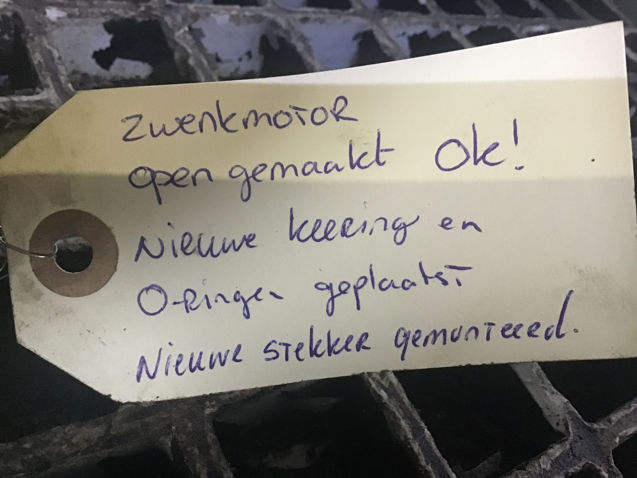 Zwenkmotor
open gemaakt Ok!
Nieuwe keering en
O-ringen geplaatst
Nieuwe stekker gemonteerd.